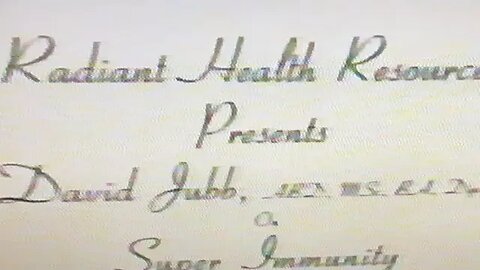 Radiant Health Resourc
Presents
David Jubb,
Super Immunity